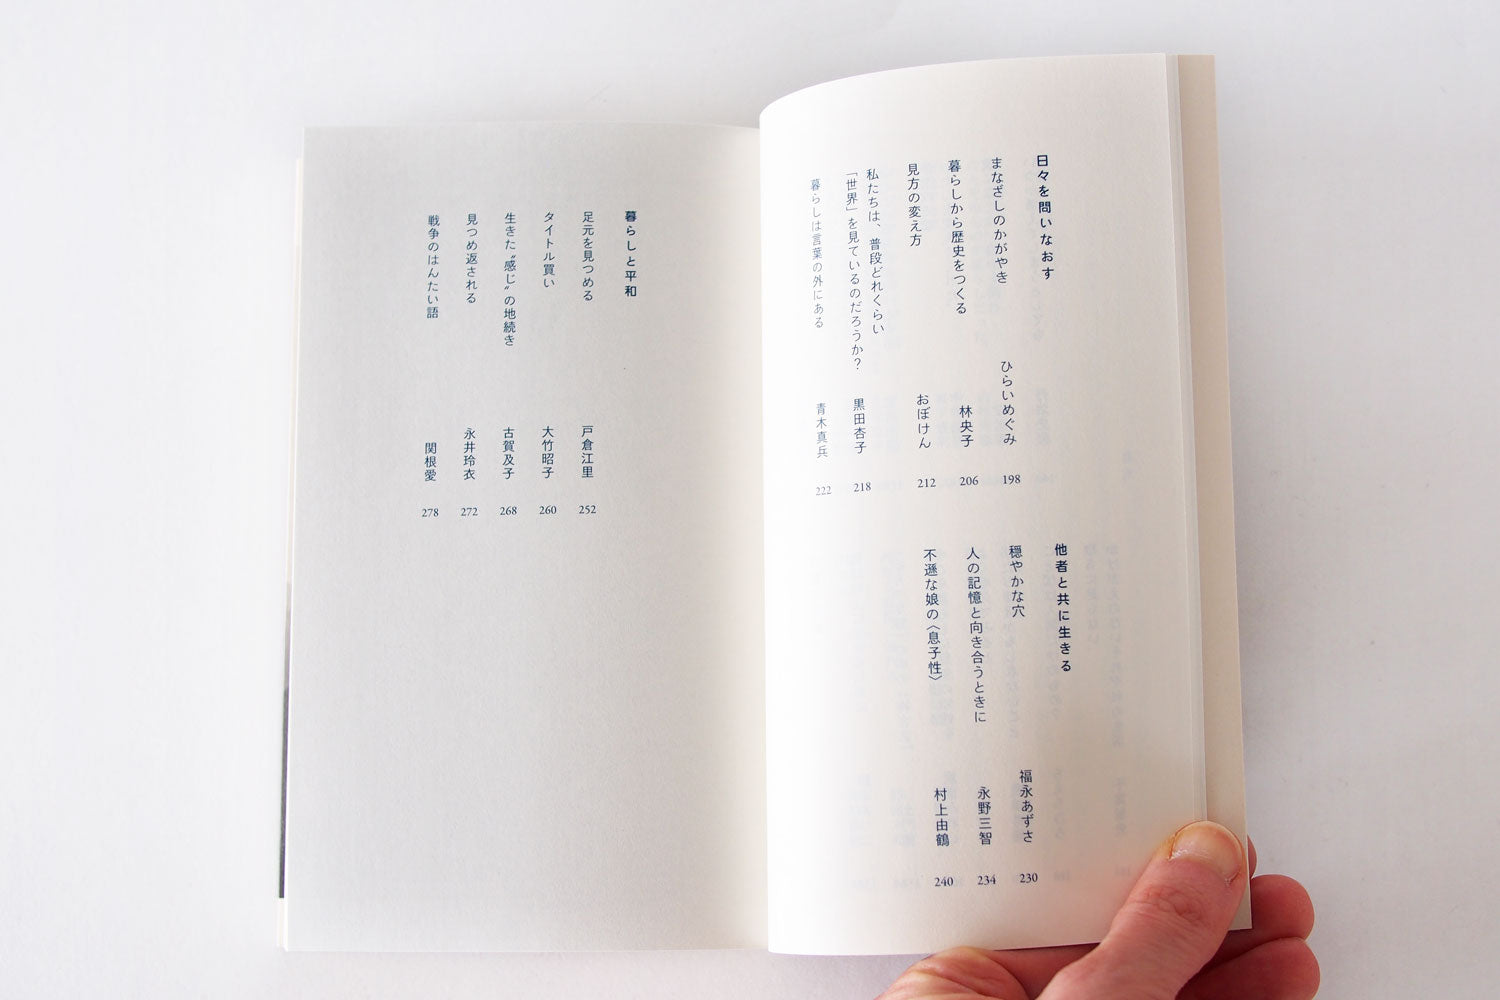 日々を問いなおす
まなざしのかがやき
ひらいめぐみ
198
暮らしから歴史をつくる
林央子
206
見方の変え方
おぼけん
212
私たちは、普段どれくらい
「世界」を見ているのだろうか？
黒田杏子
218
暮らしは言葉の外にある
青木真兵
222
他者と共に生きる
穏やかな穴
福永あずさ
230
人の記憶と向き合うときに
永野三智
234
不遜な娘の〈息子性〉
村上由鶴
240
暮らしと平和
足元を見つめる
戸倉江里
252
タイトル買い
大竹昭子
260
生きた〝感じ〟の地続き
古賀及子
268
見つめ返される
永井玲衣
272
戦争のはんたい語
関根愛
278